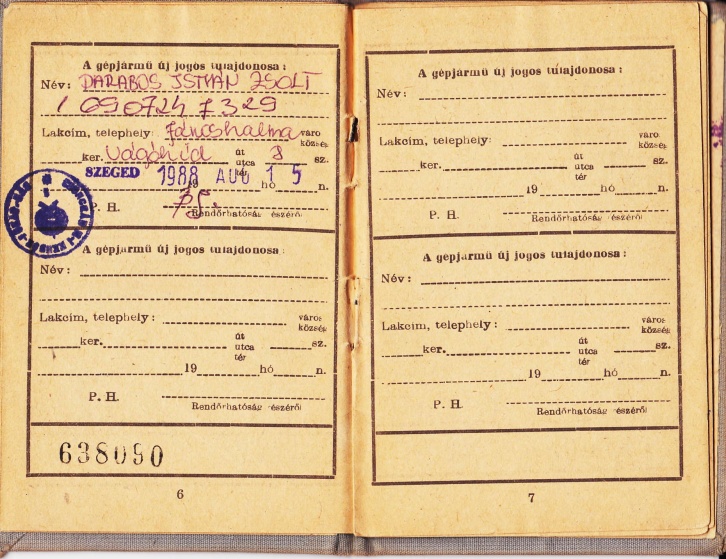 A gépjármű új jogos tulajdonosa:
Név: DARABOS ISTVÁN ZSOLT
1 090724 7329
Lakcím, telephely: Jánoshalma város község
ker. Vágóhíd út utca tér 8 sz.
SZEGED 1988 AUG 15
19 hó n.
P. H.
Rendőrhatóság részéről
A gépjármű új jogos tulajdonosa:
Név:
Lakcím, telephely: város község
ker. út utca tér sz.
19 hó n.
P. H.
Rendőrhatóság részéről
638090
6
A gépjármű új jogos tulajdonosa:
Név:
Lakcím, telephely: város község
ker. út utca tér sz.
19 hó n.
P. H.
Rendőrhatóság részéről
A gépjármű új jogos tulajdonosa:
Név:
Lakcím, telephely: város község
ker. út utca tér sz.
19 hó n.
P. H.
Rendőrhatóság részéről
7